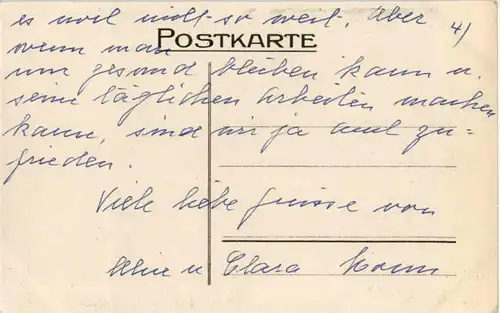 es noch nicht so weit. Aber
4)
wenn man
POSTKARTE
nur gesund bleiben kann u.
seine täglichen Arbeiten machen
kann, sind wir ja auch zu=
frieden.
Viele liebe Grüsse von
u Clara